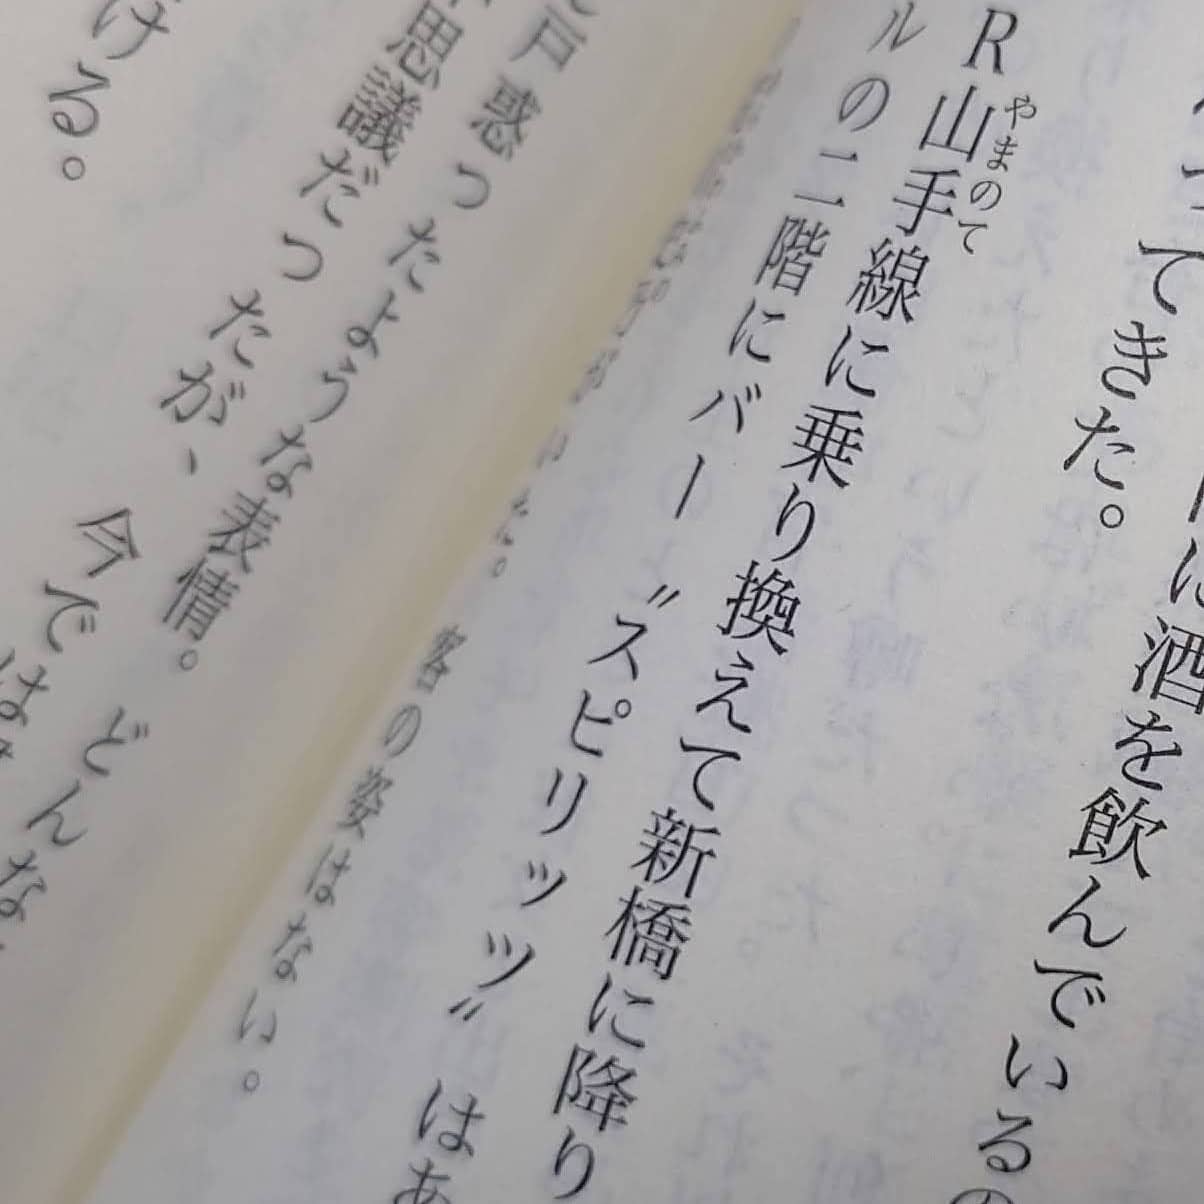 ってきた。
に酒を飲んでいるの
R山手線に乗り換えて新橋に降り
やまのて
ルの二階にバー〝スピリッツ〟はあ
客の姿はない。
戸惑ったような表情。どんな
思議だったが、今では
ける。